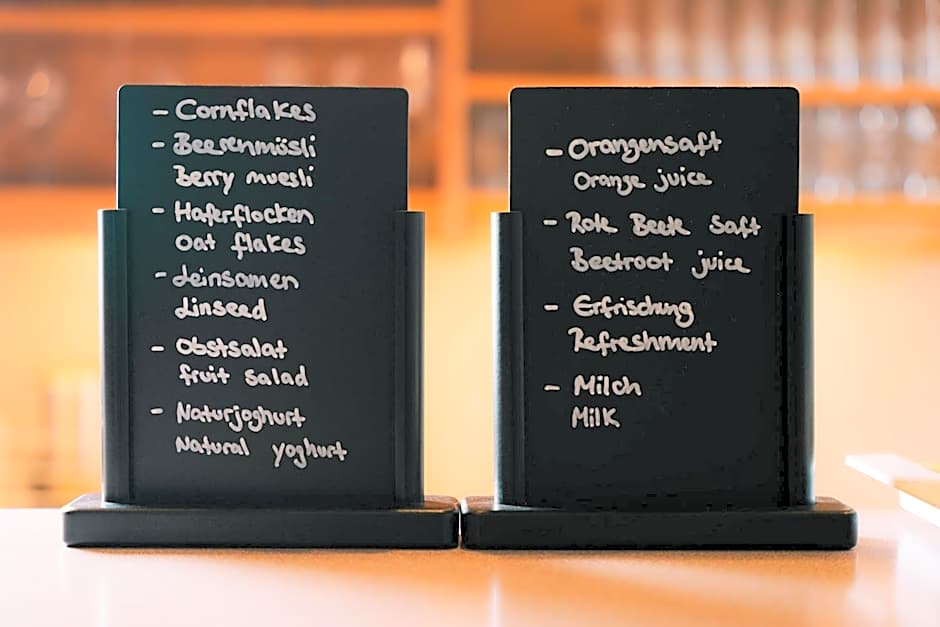 - Cornflakes
- Beerenmüsli
Berry muesli
- Haferflocken
Oat flakes
- Leinsamen
Linseed
- Obstsalat
fruit salad
- Naturjoghurt
Natural yoghurt
- Orangensaft
Orange juice
- Rote Beete Saft
Beetroot juice
- Erfrischung
Refreshment
- Milch
Milk